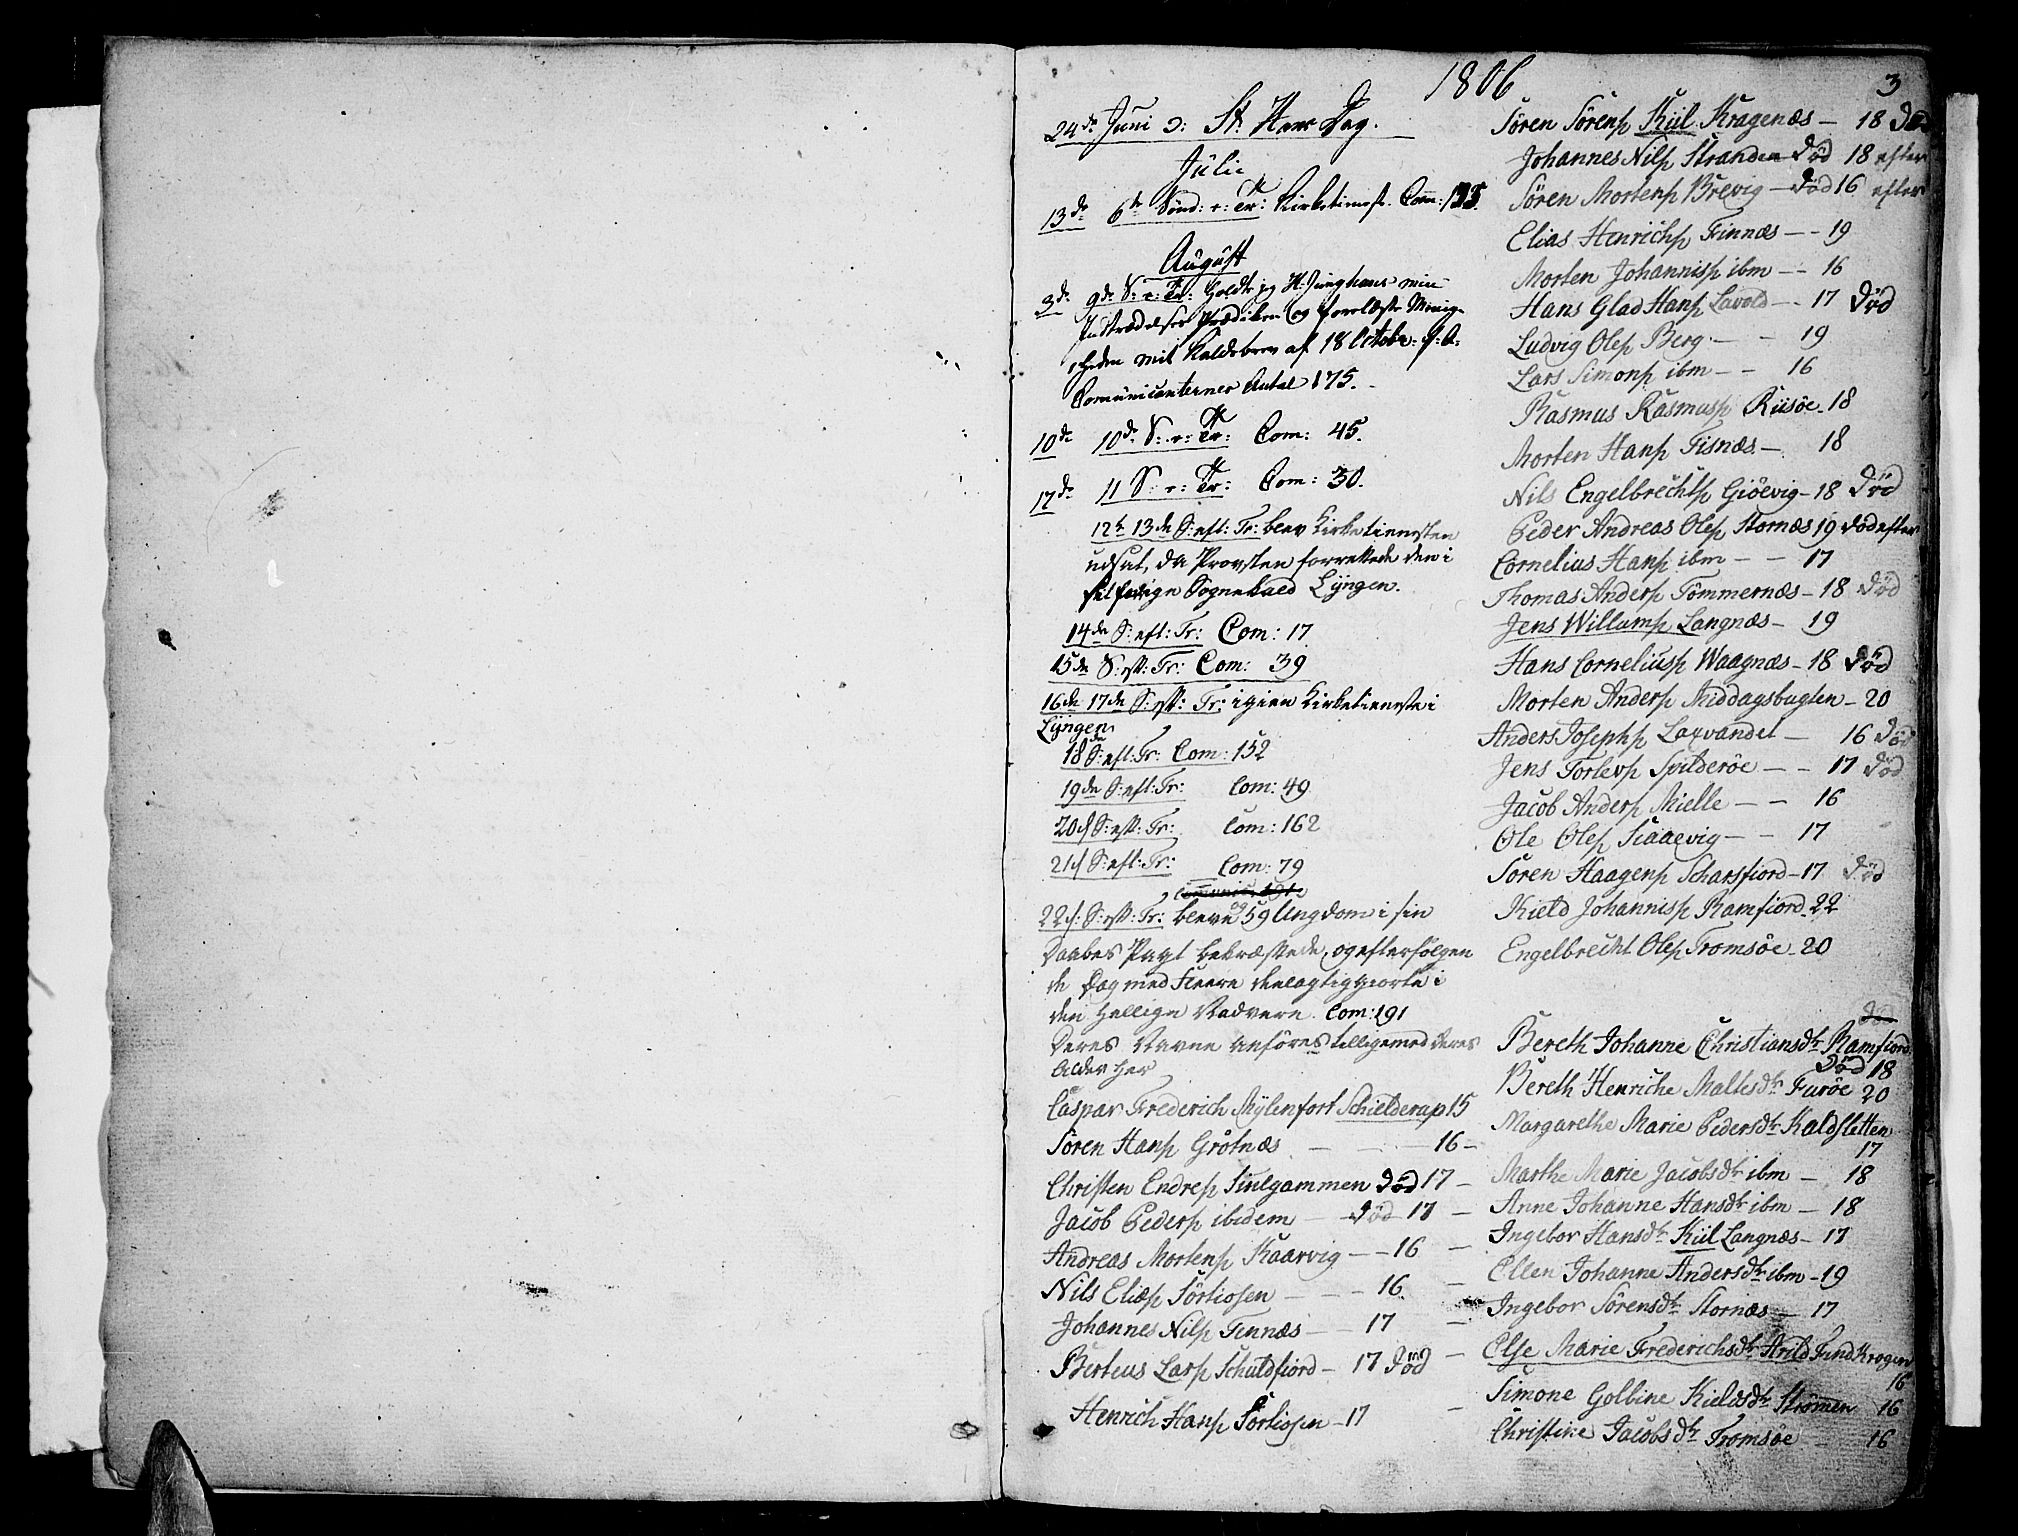 1806
3
24de Juni ɔ: St. Hans Dag.
Julii
13de 6te Sønd: e: Tr: Kirketienest. Com: 135.
August
3de 9de S: e: Tr: holdt jeg H. Junghans min
Indtrædelses Prædiken og forelæste Menig-
heden mit Kaldsbrev af 18 Octobr: f: A:
Comunicanternes Antal 175.
10de 10de S: e: Tr: Com: 45.
17de 11 S: e: Tr: Com: 30.
12te 13de S: eft: Tr: blev Kirketienesten
udsat, da Provsten forrettede den i
Sognekald Lÿngen.
14de S: eft: Tr: Com: 17
15de S: eft: Tr: Com: 39
16de 17de S: eft: Tr: igien Kirketieneste i
Lÿngen
18de S: eft: Tr: Com: 152
19de S: eft: Tr: Com: 49
20d S: eft: Tr: Com: 162
21d S: eft: Tr: Com: 79
22d: S: eft: Tr: bleve og 59 Ungdom i sin
Daabes Pagt bekræftede, og efterfølgen
de Dag med Fleere deelagtiggiorte i
den hellige Nadvere. Com: 191
Deres Navne anføres tilligemed deres
Alder her
Caspar Frederich Mÿlenfort Schielderup 15
Sören Hansen Gròtnæs 16
Christen Endres. Sinlgammen Död 17
Jacob Peders. ibidem Död 17
Andreas Mortens. Kaarvig 16
Nils Elias. Sörliosen 16
Johannes Nils. Finnæs 17
Berteus Lars. Schuldfiord 17 Död
Henrich Hans. Sörliosen 17
Sören Sörens. Kiil Kragenæs 18 Död
Johannes Nils. Stranden Död 18 efter
Sören Mortens. Brevig Död 16 efter
Elias Henrichs. Finnæs 19
Morten Johannis. ibm 16
Hans Glad Hans. Lavold 17 Död
Ludvig Oles. Berg 19
Lars Simons. ibm 16
Rasmus Rasmus. Riisöe 18
Morten Hans. Tisnæs 18
Nils Engelbrechts. Giöevig 18 Död
Peder Andreas Oles. Stornæs 19 Död efter
Cornelius Hans. ibm 17
Thomas Anders. Tömmernæs 18 Död
Jens Willums. Langnæs 19
Hans Cornelius. Waagnæs 18 Död
Morten Anders. Middagsbugten 20
Anders Josephs. Laxvandet 16 Död
Jens Torlevs. Spilderöe 17 Död
Jacob Anders. Mielle 16
Ole Oles. Skaaevig 17
Sören Haagens. Scharsfiord 17 Död
Kield Johannis. Ramfiord 22
Engelbrecht Oles. Tromsöe 20
Bereth Johanne Christiansdtr Ramfiord
Död 18
Bereth Henriche Maltesdtr Furöe 20
Margarethe Marie Pedersdtr Kaldsletten
17
Marthe Marie Jacobsdtr ibm 18
Anne Johanne Hansdtr ibm 18
Ingebor Hansdtr Kiil Langnæs 17
Ellen Johanne Andersdtr ibm 19
Ingebor Sörensdtr Stornæs 17
Else Marie Frederichsdtr Arild Find Krogen
16
Simone Golbine Kieldsdtr Strömmen 16
Christine Jacobsdtr Tromsöe 16